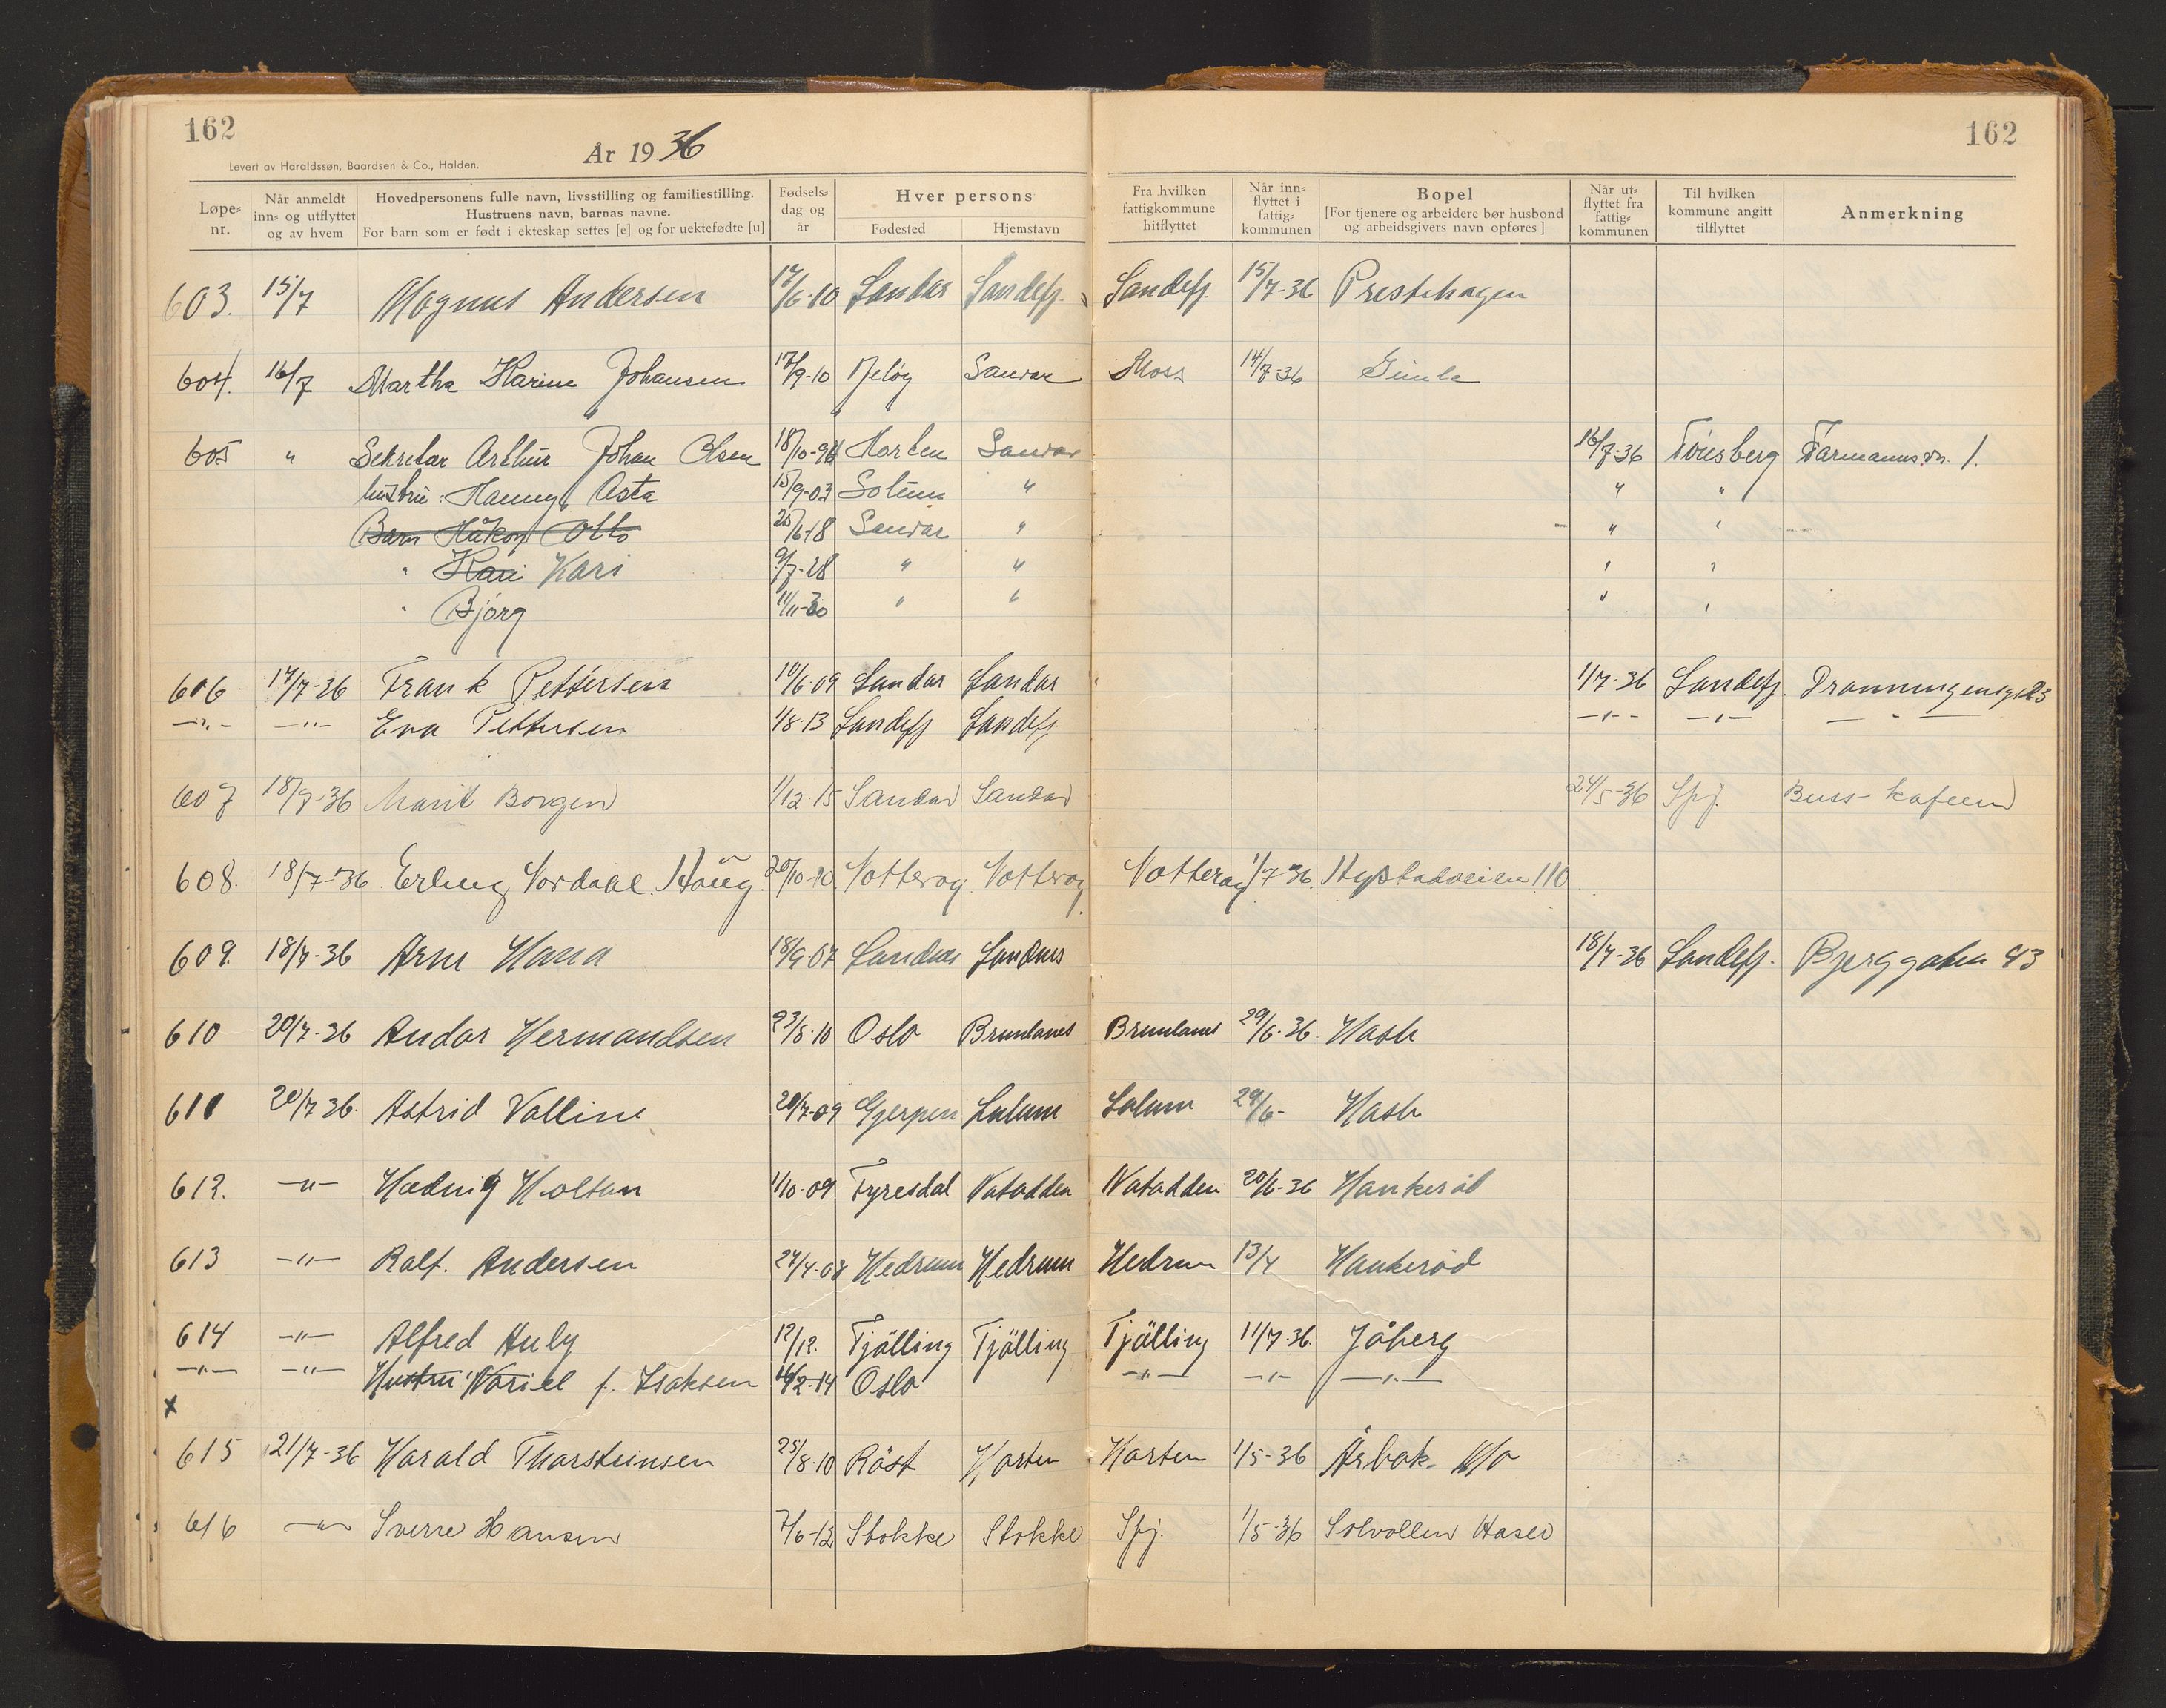 162
162
År 1936
Levert av Haraldssøn, Baardsen & Co., Halden.
Løpe-nr. | Når anmeldt inn- og utflyttet og av hvem | Hovedpersonens fulle navn, livsstilling og familiestilling. Hustruens navn, barnas navne. For barn som er født i ekteskap settes [e] og for uektefødte [u] | Fødsels-dag og år | Hver persons Fødested | Hjemstavn | Fra hvilken fattigkommune hitflyttet | Når inn-flyttet i fattig-kommunen | Bopel [For tjenere og arbeidere bør husbond og arbeidsgivers navn opføres] | Når ut-flyttet fra fattig-kommunen | Til hvilken kommune angitt tilflyttet | Anmerkning
603. 15/7 Magnus Andersen 17/6-10 Sandar Sandefj. Sandefj. 15/7-36 Prestehagen
604. 16/7 Martha Karine Johansen 17/9-10 Jeløy Sandar Moss 14/7-36 Gimle
605 " Sekretær Arthur Johan Olsen 18/10-96 Horten Sandar 16/7-36 Tønsberg Farmannsvn. 1.
hustru: Hanny Asta 15/9-03 Solum " " "
Barn Håkon Otto 25/6-18 Sandar " " "
" Kari Kari 9/7-28 " " " "
" Bjørg 11/11-30 " " " "
606 17/7-36 Frank Pettersen 10/6-09 Sandar Sandar 1/7-36 Sandefj. Dronningensgt 23
-"- -"- Eva Pettersen 1/8-13 Sandefj Sandefj -"- -"- -"-
607 18/7-36 Marit Borgen 1/12-15 Sandar Sandar 24/5-36 Sfj. Buss-kafeen
608. 18/7-36. Erling Nordahl Haug. 20/10-10 Nøtterøy. Nøtterøy Nøtterøy 1/7-36. Hystadveien 110
609. 18/7-36 Arne Haga 18/9-07 Sandnes Sandnes 18/7-36 Sandefj. Bjerggaten 43
610 20/7-36 Andor Hermandsen 23/8-10 Oslo Brunlanes Brunlanes 29/6-36. Hasle
611 20/7 36. Astrid Valline 20/7-09 Gjerpen Solum Solum 29/6- Hasle
612. -"- Hedvig Holtan 1/10-09 Fyresdal Notodden Notodden 20/6-36 Haukerød
613 -"- Ralf. Andersen 24/4-08 Hedrum Hedrum Hedrum 13/7 Haukerød
614 -"- Alfred Auby 12/12. Tjølling Tjølling Tjølling 11/7-36. Jåberg
-"- -"- Hustru f. Isaksen 16/2-14 Oslo -"- -"- -"-
x
615 21/7-36 Harald Thorsteinsen 25/8-10 Røst Horten Horten 1/5-36
616 -"- Sverre Hansen 7/6-12 Stokke Stokke Sfj. 1/5-36 Solvollen Hasle